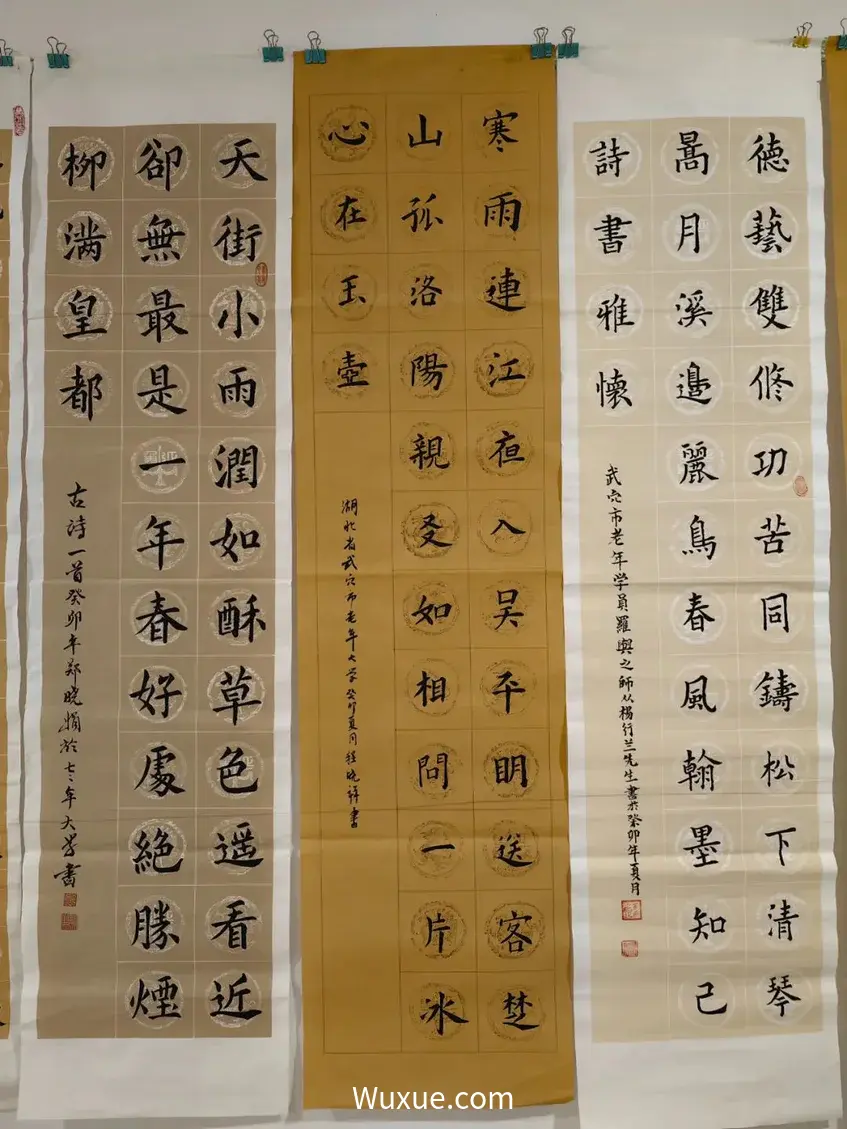 徳藝雙修功苦同鑄松下清琴
暠月溪邊麗鳥春風翰墨知己
詩書雅懷
武穴市老年学員羅與之師从楊行兰先生書於癸卯年夏月
寒雨連江夜入吴平明送客楚
山孤洛陽親友如相問一片冰
心在玉壺
湖北省武穴市老年大学癸卯夏月程晓祥書
天街小雨潤如酥草色遥看近
卻無最是一年春好處絶勝煙
柳满皇都
古诗一首癸卯年郑晓娟於年大学書
Wuxue.com